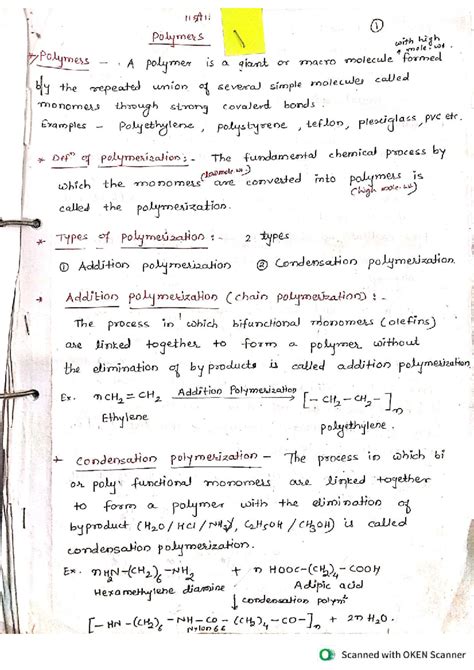 ①
Polymers
with high mole. wt.
* Polymers - . A polymer is a giant or macro molecule formed
by the repeated union of several simple molecules called
monomers through strong covalend bonds.
Examples - Polyethylene, polystyrene, teflon, plexiglass, pvc etc.
* Defⁿ of polymerization:- The fundamental chemical process by
which the monomers (low mole. wt.) are converted into polymers is
(high mole. wt)
called the polymerization.
* Types of polymerization :- 2 types
① Addition polymerization ② Condensation polymerization.
* Addition polymerization (chain polymerization) :-
The process in which bifunctional monomers (olefins)
are linked together to form a polymer without
the elimination of byproducts is called addition polymerization
Ex. nCH2 = CH2 Addition Polymerization → [- CH2 - CH2 -]n
Ethylene polyethylene.
+ Condensation polymerization - The process in which bi
or poly functional monomers are linked together
to form a polymer with the elimination of
byproduct (H2O / HCl / NH3, C2H5OH / CH3OH) is called
condensation polymerization.
Ex. n H2N-(CH2)6-NH2 + n HOOC-(CH2)4-COOH
Hexamethylene diamine Adipic acid
↓ condensation polymⁿ
[- HN - (CH2)6 - NH - CO - (CH2)4 - CO -]n + 2n H2O.
Nylon 66
Scanned with OKEN Scanner